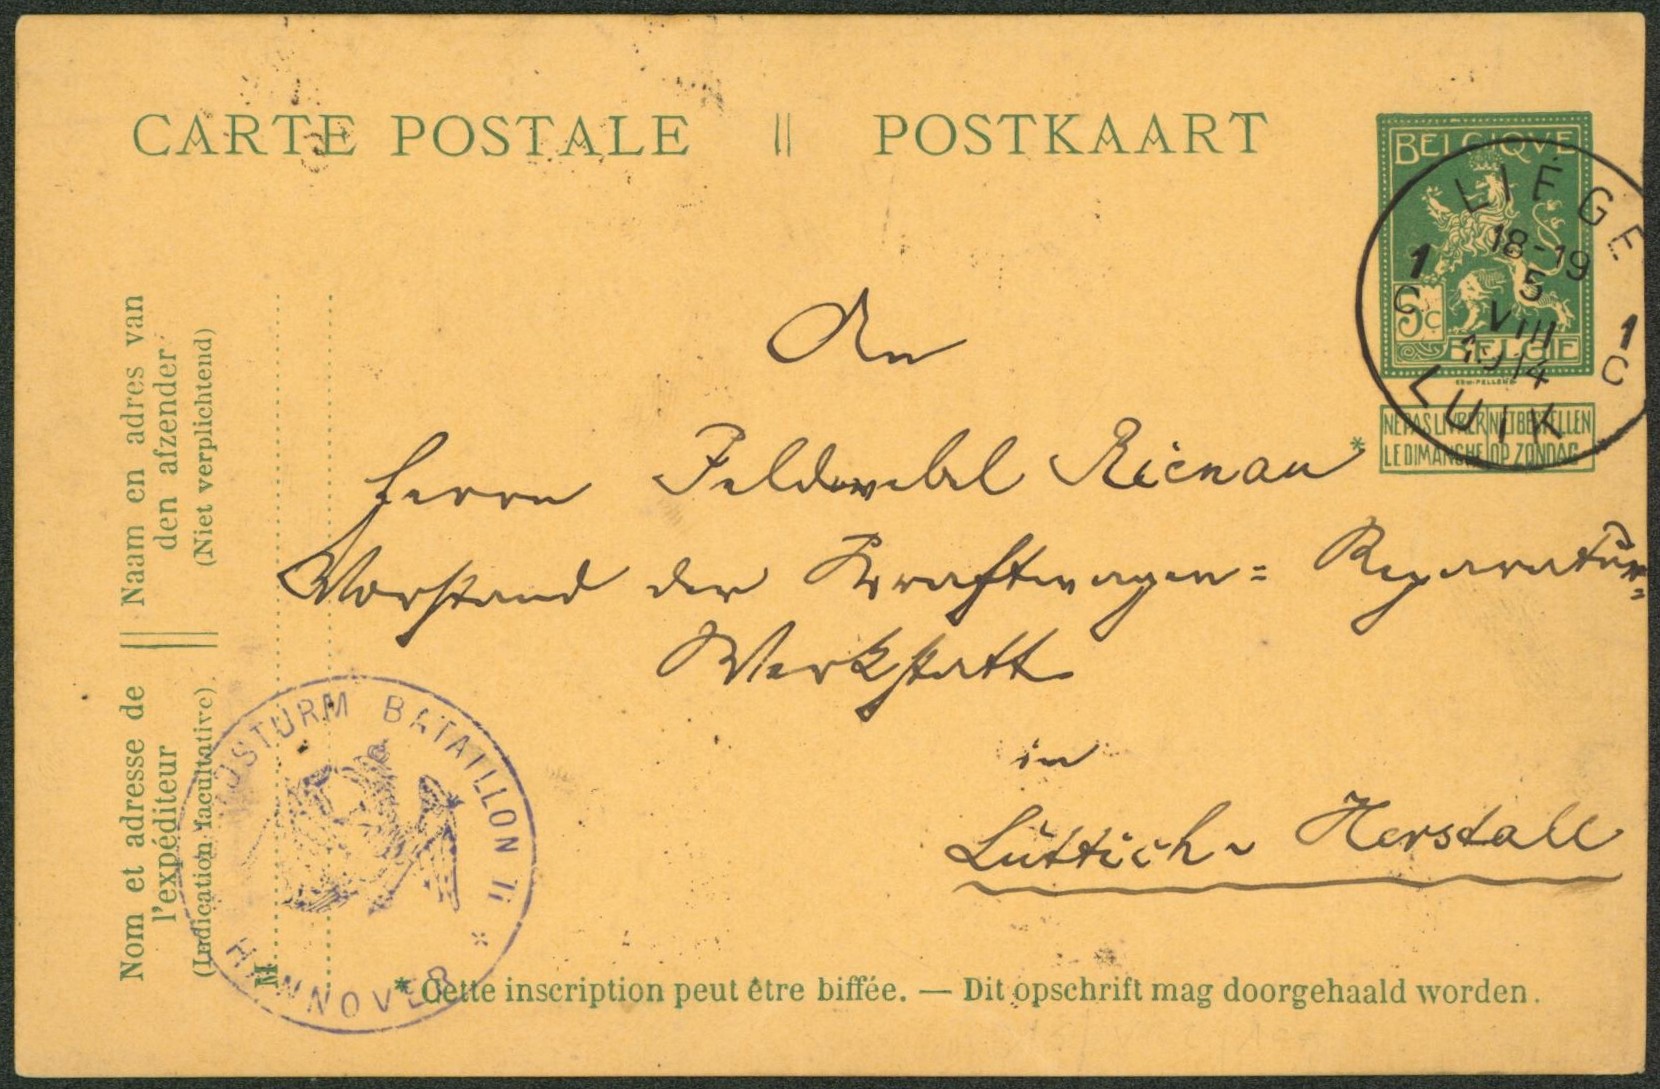 CARTE POSTALE || POSTKAART
BELGIQVE
5c
BELGIË
NE PAS LIVRER LE DIMANCHE
NIET BESTELLEN OP ZONDAG
LIÉGE
18-19
5
VIII
1914
1 C
1 C
LUIK
An
Herrn Feldwebel Rienau *
Vorstand der Kraftwagen= Reparatur=
Werkstatt
in
Lüttich - Herstall
Naam en adres van
den afzender
(Niet verplichtend)
Nom et adresse de
l'expéditeur
(Indication facultative)
M
STURM BATAILLON II *
HANNOVER
* Cette inscription peut être biffée. — Dit opschrift mag doorgehaald worden.